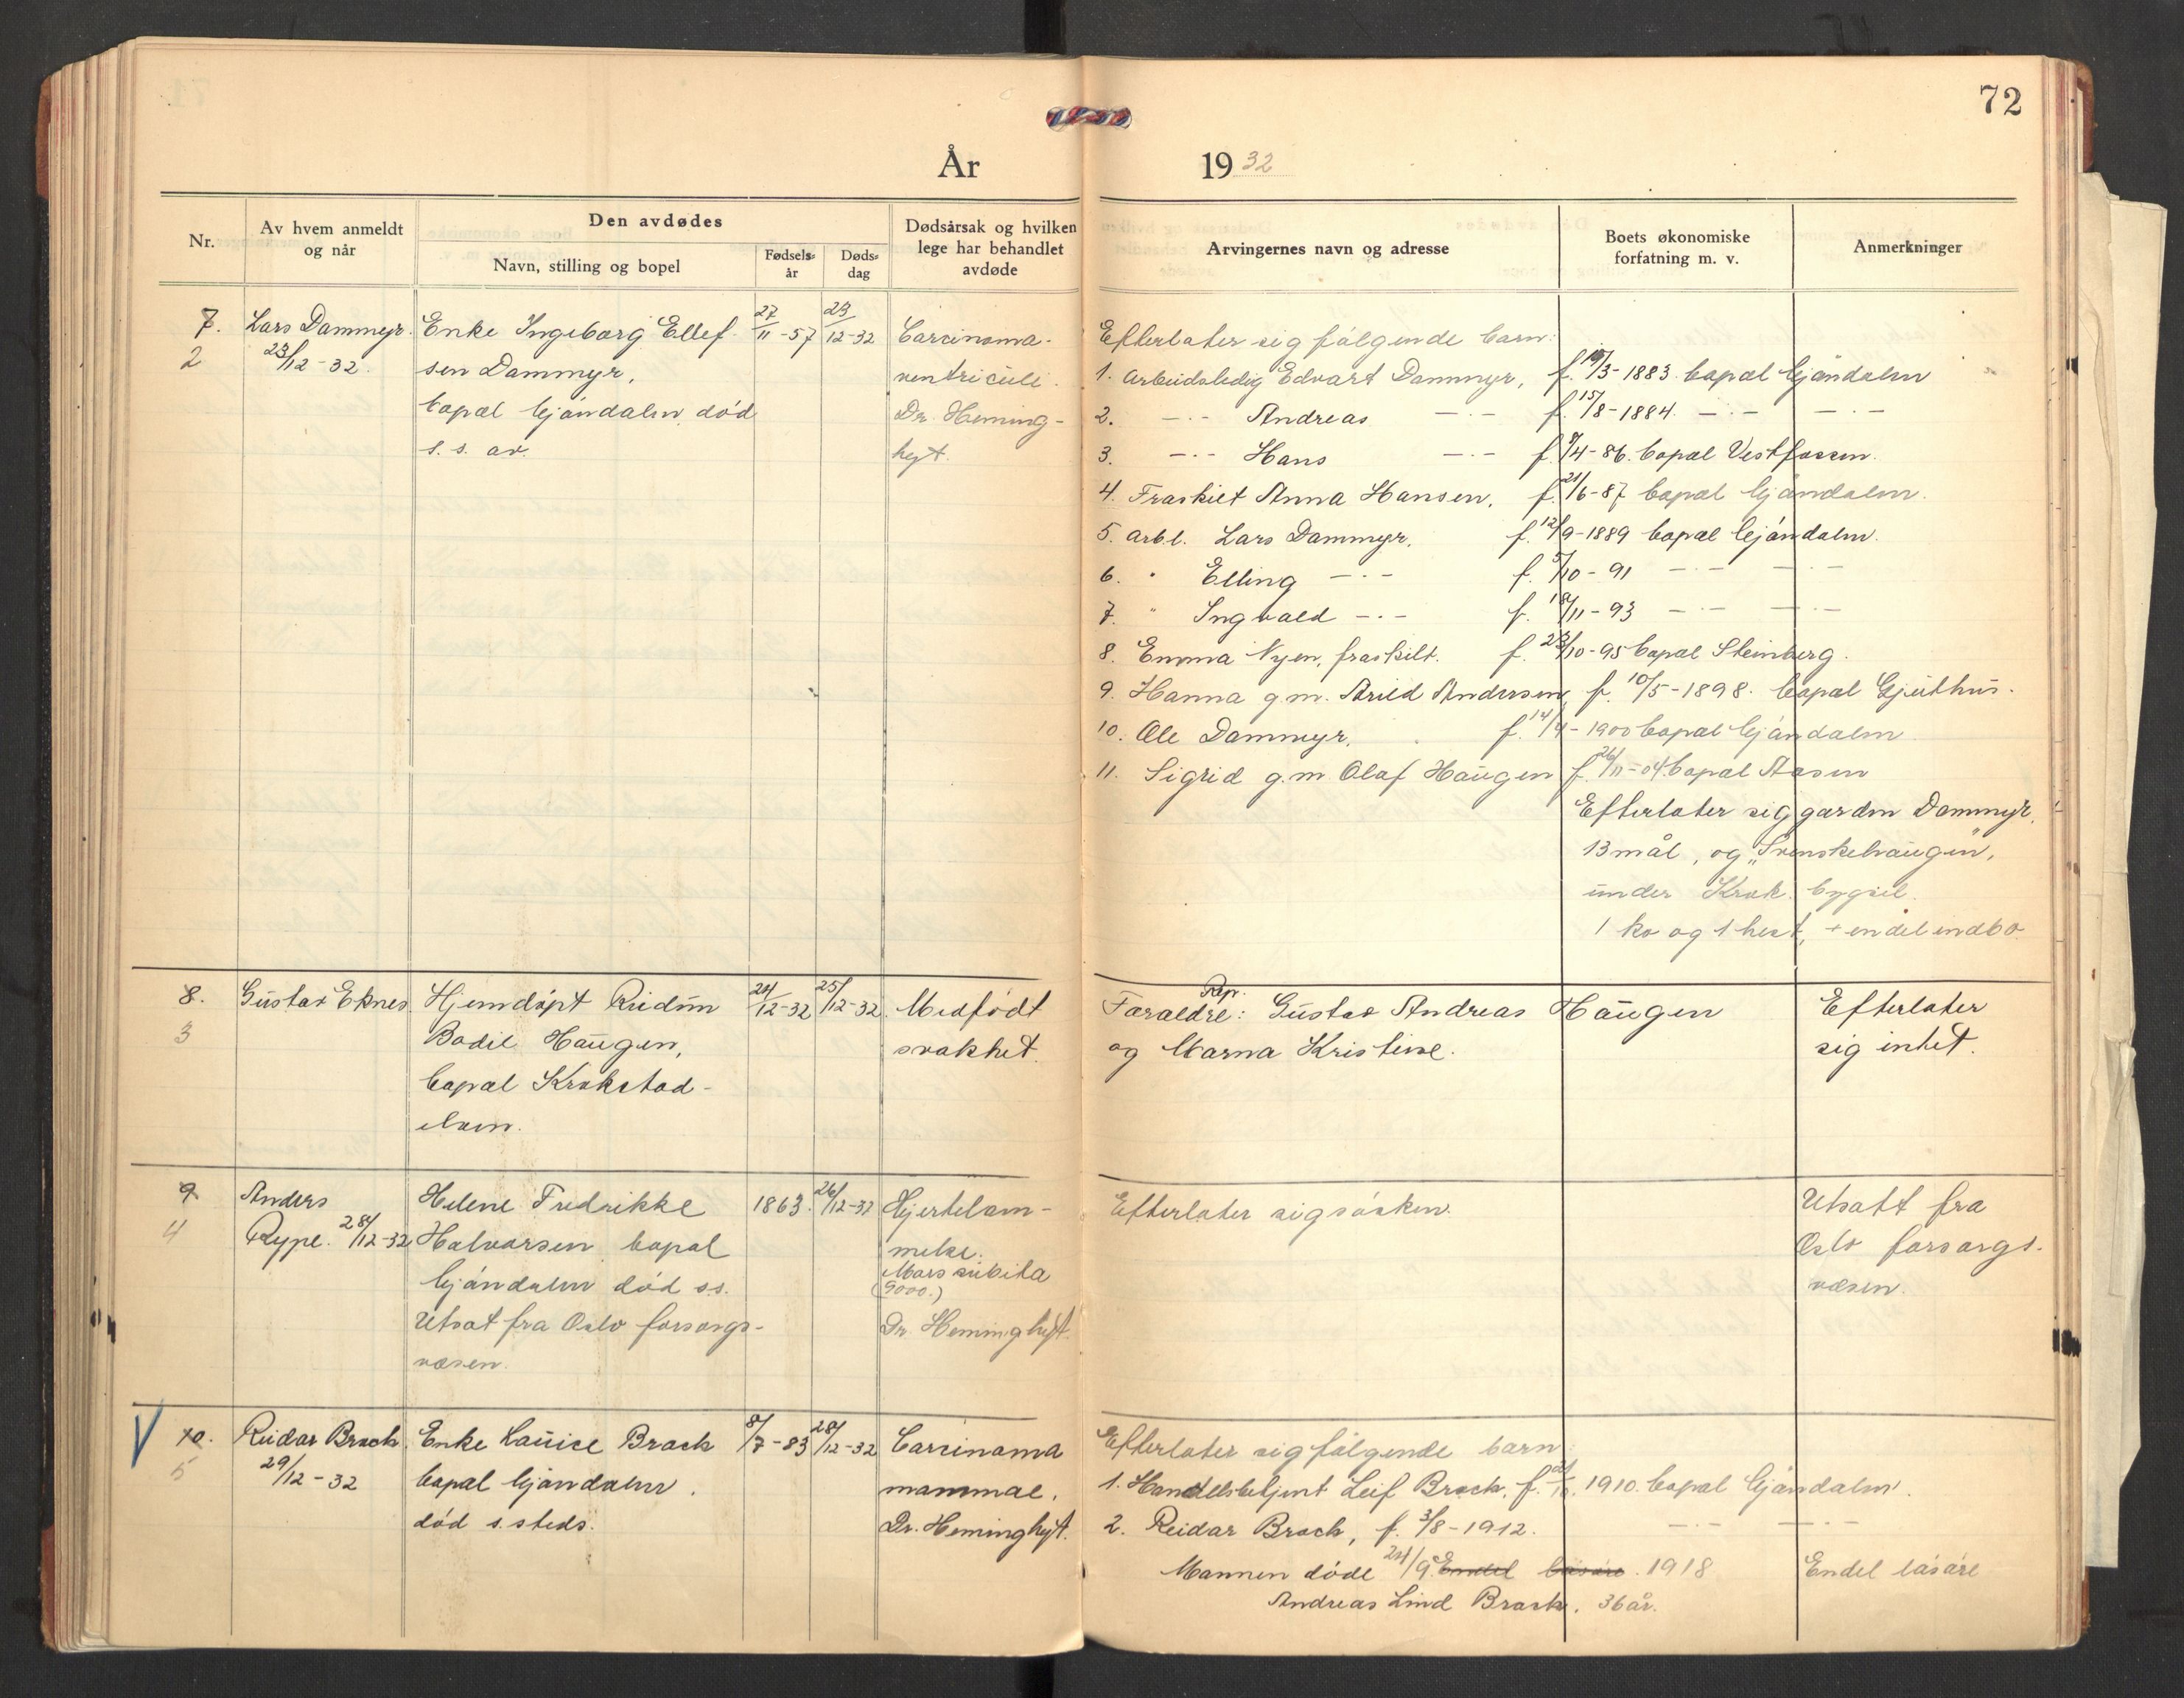 72
År 1932
Nr.
Av hvem anmeldt
og når
Den avdødes
Navn, stilling og bopel
Fødsels-
år
Døds-
dag
Dødsårsak og hvilken
lege har behandlet
avdøde
Arvingernes navn og adresse
Boets økonomiske
forfatning m. v.
Anmerkninger
7.
2
Lars Dammyr.
23/12-32.
Enke Ingeborg Ellef-
sen Dammyr,
bopæl Gjøndalen død
s. s. av.
27/11-57
23/12-32
Carcinoma-
ventriculi.
Dr. Heming-
hyt.
Efterlater sig følgende barn:
1. Arbeidsledig Edvart Dammyr, f. 19/3-1883. bopæl Gjøndalen
2. -·- Andreas -·- f. 15/8-1884. -·- -·-
3. -·- Hans -·- f. 9/4-86. bopæl Vestfossen.
4. Fraskilt Anna Hansen, f. 21/6-87 bopæl Gjøndalen.
5. arb.l. Lars Dammyr, f. 12/9-1889 bopæl Gjøndalen.
6. " Elling -·- f. 5/10-91 -·- -·-
7. " Ingvald -·- f. 18/11-93 -·- -·-
8. Emma Nyen, fraskilt. f. 23/10-95 bopæl Steinberg.
9. Hanna g.m. Arild Andersen, f. 10/5-1898. bopæl Gjuthus.
10. Ole Dammyr, f. 14/4-1900 bopæl Gjøndalen
11. Sigrid g.m Olaf Haugen f. 26/11-04. bopæl Aasen
Efterlater sig garden Dammyr,
13 mål, og „Svenskehaugen",
under Krok. bygsel.
1 ko og 1 hest, + endel indbo.
8.
3
Gustav Eknes.
Hjemdøpt Reidun
Bodil Haugen,
bopæl Krokstad-
elven.
24/12-32
25/12-32.
Medfødt
svakhet.
Rep.
Foræeldre: Gustav Andreas Haugen
og Marna Kristine.
Efterlater
sig intet.
9
4
Anders
Rype. 28/12-32
Helene Fredrikke
Halvorsen bopæl
Gjøndalen død s.s.
Utsat fra Oslo forsorgs-
væsen.
1863.
26/12-32
Hjertelam-
melse.
Mors subita
(9000.)
Dr. Heminghyt.
Efterlater sig søsken.
Utsatt fra
Oslo forsorgs-
væsen.
V 10.
5
Reidar Brock.
29/12-32
Enke Lauise Brock
bopæl Gjøndalen.
død s. steds.
8/7-83
28/12-32
Carcinoma
mammae.
Dr. Heminghyt.
Efterlater sig følgende barn:
1. Handelsbetjent Leif Brock, f. 1910. bopæl Gjøndalen.
2. Reidar Brock, f. 3/8-1912. -·- -·-
Mannen døde 24/9. Endel løsøre. 1918
Andreas Lind Brock, 36 år.
Endel løsøre